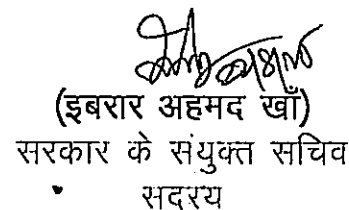 (इबरार अहमद खाँ)
सरकार के संयुक्त सचिव
सदस्य